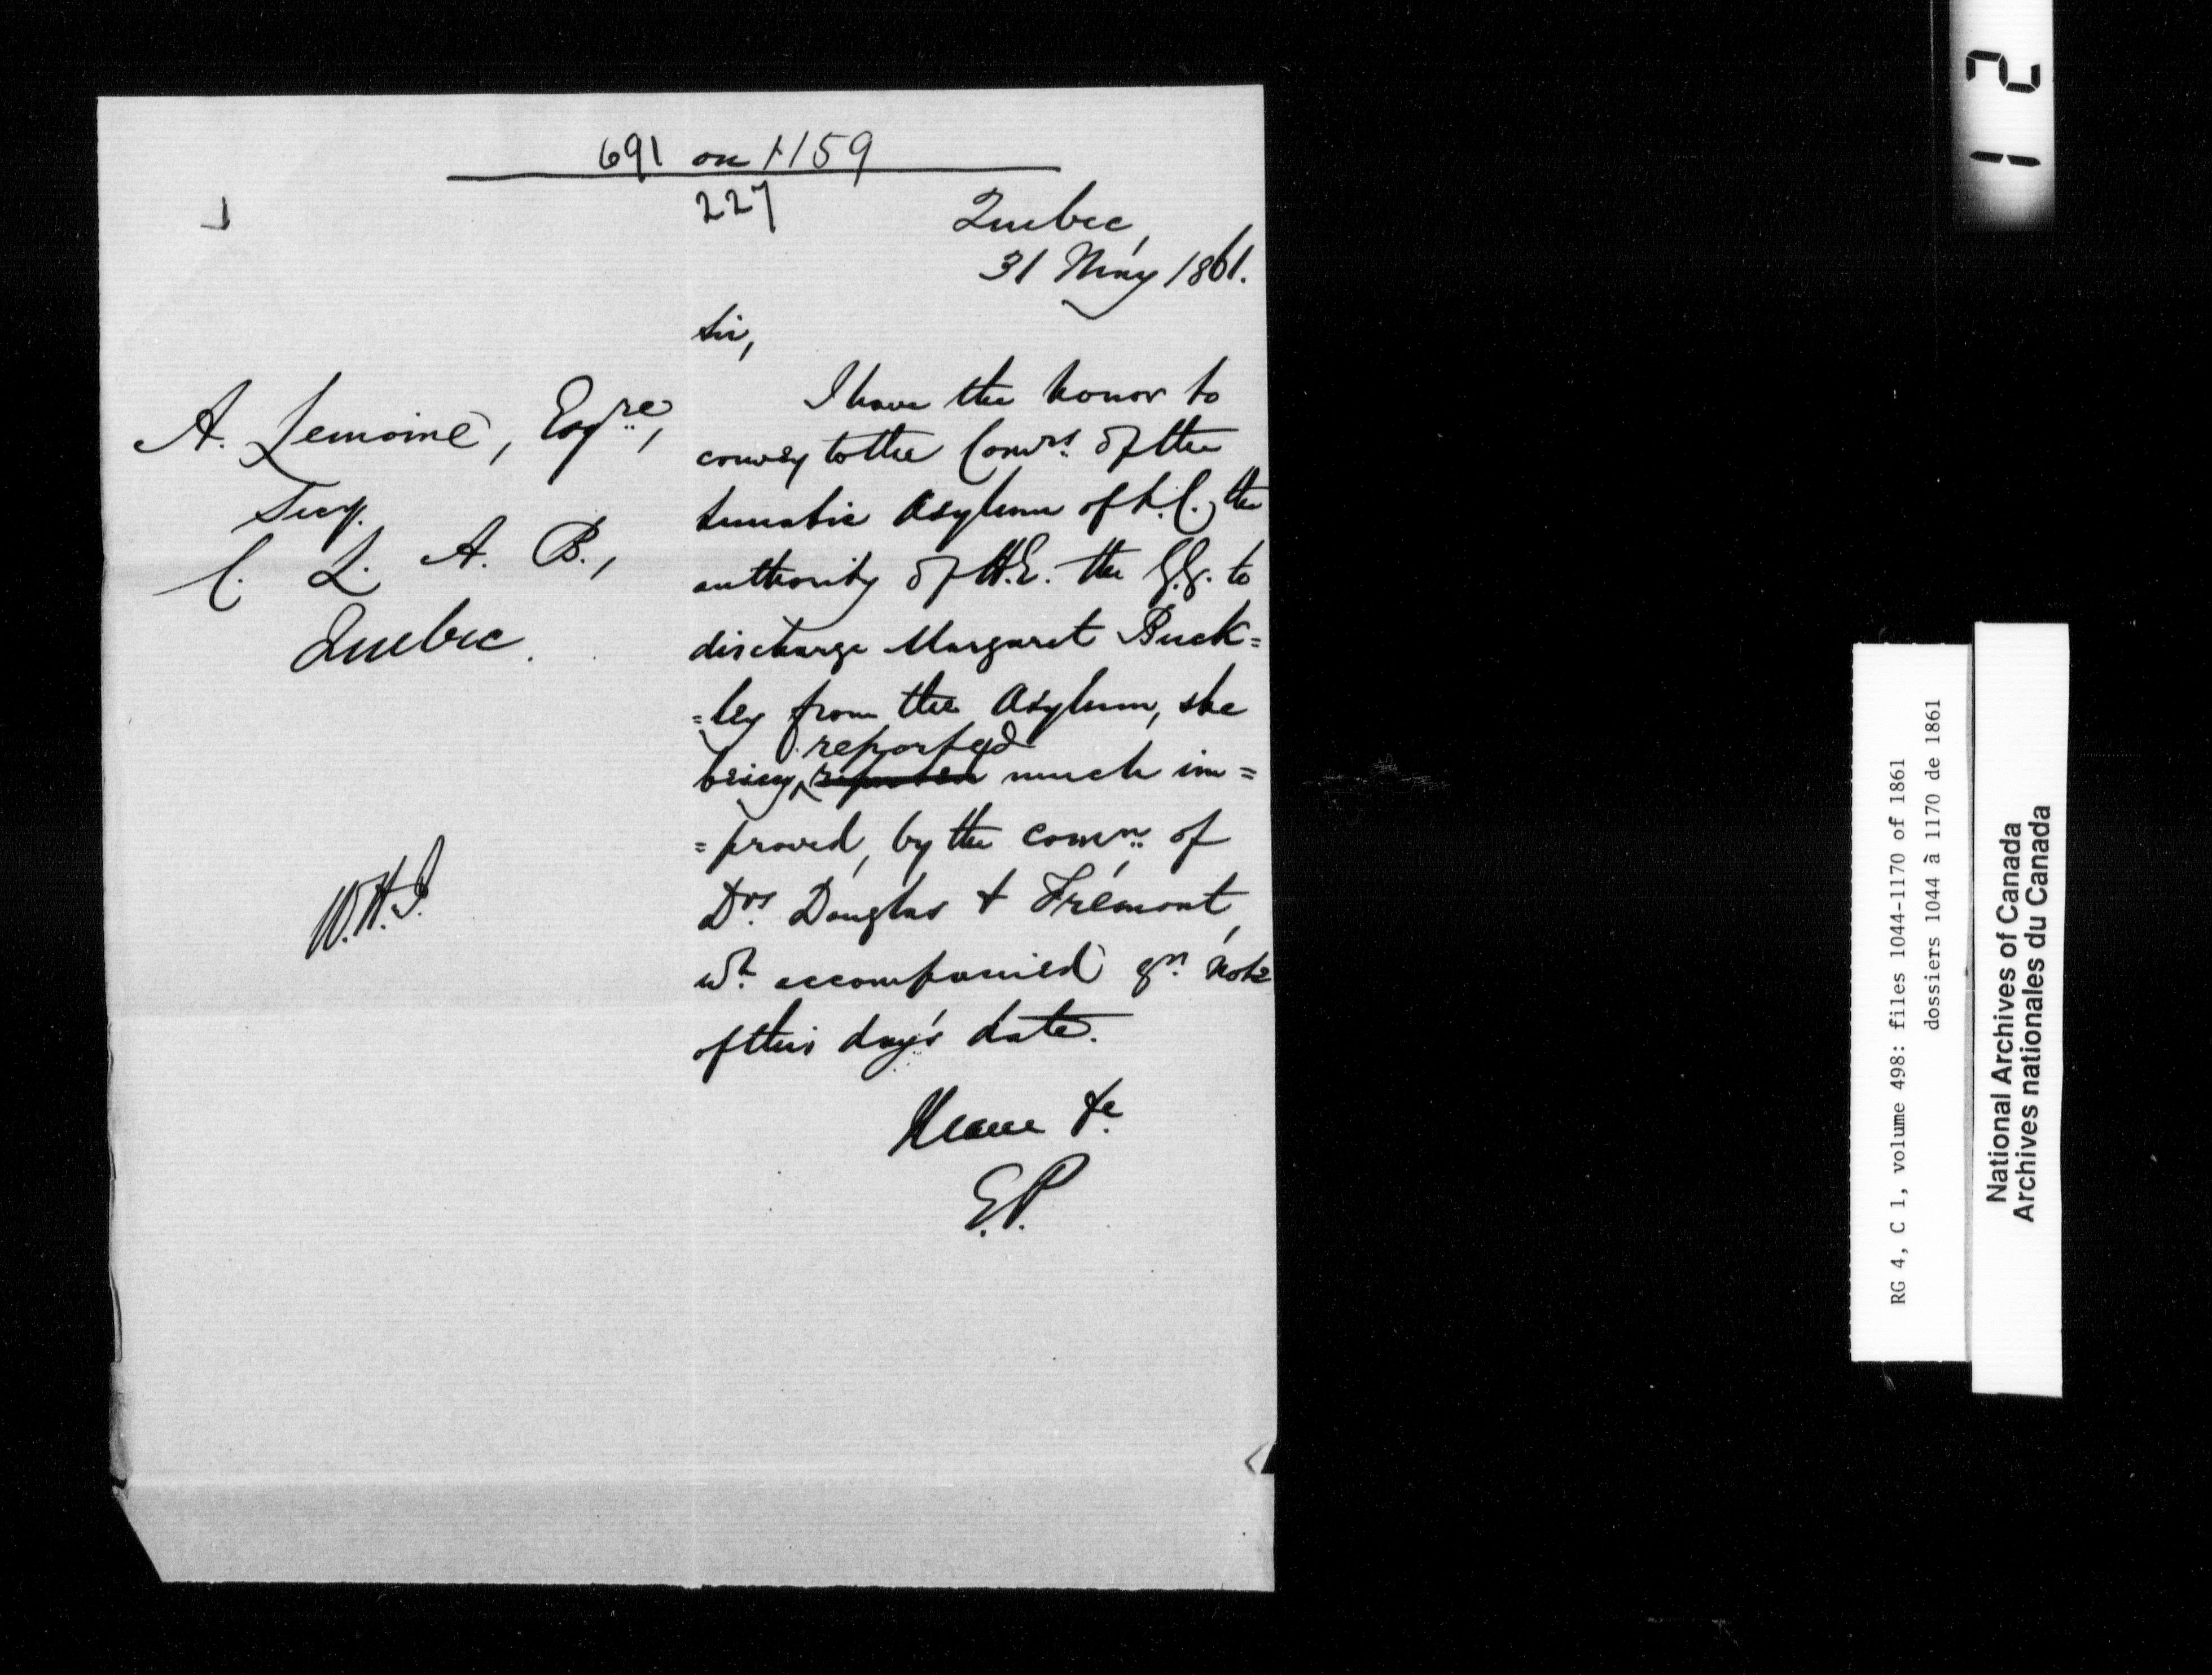 691 on 1159
227
Quebec,
31 May 1861.
Sir,
A. Lemoine, Esqre,
Secy.
C. L. A. B.,
Quebec.
I have the honor to
convey to the Comrs. of the
Lunatic Asylum of L.C., the
authority of H.E. the G.G. to
discharge Margaret Buck=
=ley from the Asylum, she
being reported much im=
=proved, by the comn. of
Drs. Douglas & Frémont,
wh. accompanied yr. note
of this day's date.
&c.
E.P.
12
RG 4, C 1, volume 498: files 1044-1170 of 1861
dossiers 1044 à 1170 de 1861
National Archives of Canada
Archives nationales du Canada